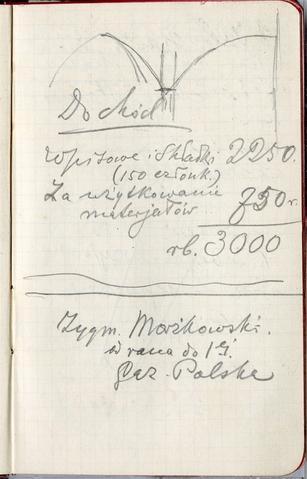 Dochód
Wpisowe i Składki 2250.
(150 członk.)
Za użytkowanie
materjałów 750 r.
rb. 3000
Zygm. Morżkowski.
z rana do 1 G.
Gaz. Polska